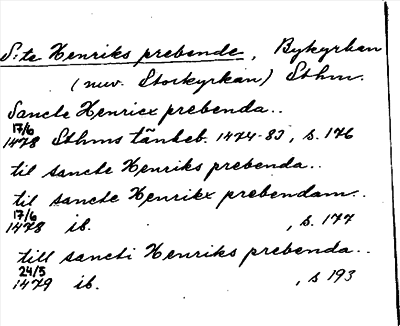 S:te Henriks prebende, Bykyrkan
(nuv. Storkyrkan) Sthm.
Sancte Henricx prebenda..
17/6
1478 Sthms tänkeb. 1474-83, s. 176
til sancte Henriks prebenda..
til sancte Henrikx prebendam..
17/6
1478 ib. , s. 177
till sancti Henriks prebenda..
24/5
1479 ib. , s 193